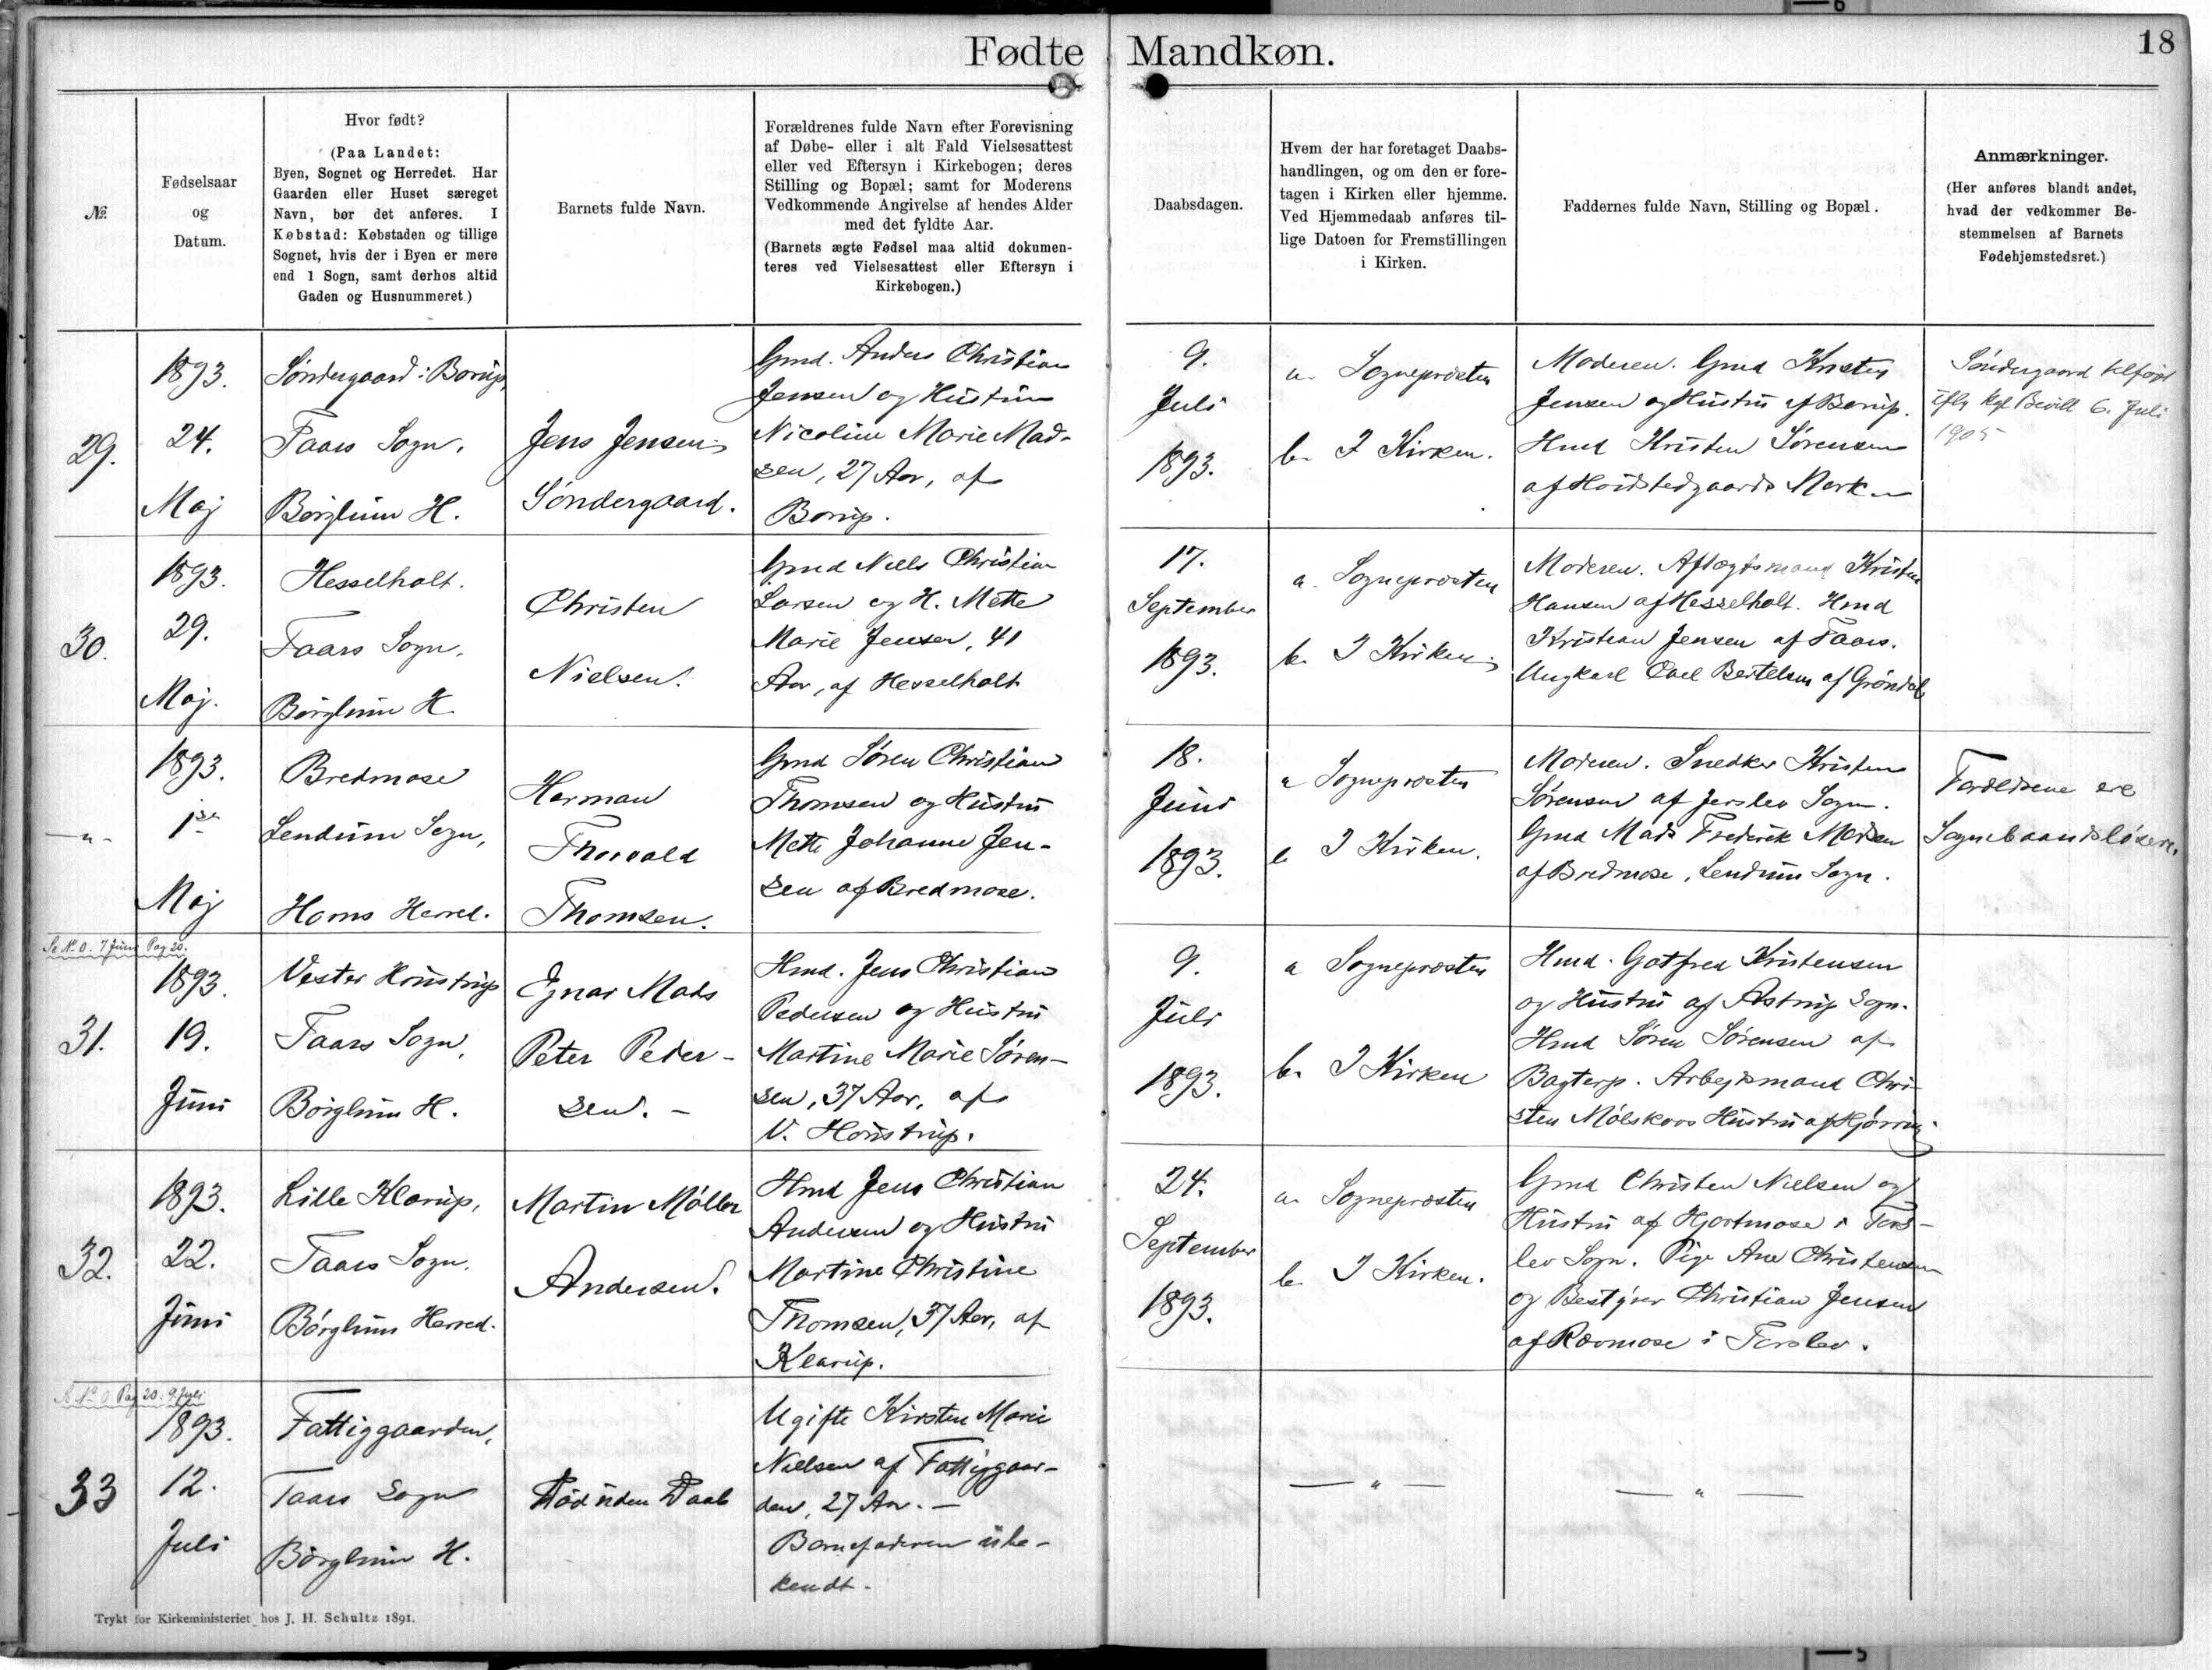 Fødte Mandkøn.
18
№
Fødselsaar
og
Datum.
Hvor født?
(Paa Landet:
Byen, Sognet og Herredet. Har
Gaarden eller Huset særeget
Navn, bør det anføres. I
Købstad: Købstaden og tillige
Sognet, hvis der i Byen er mere
end 1 Sogn, samt derhos altid
Gaden og Husnummeret.)
Barnets fulde Navn.
Forældrenes fulde Navn efter Forevisning
af Døbe- eller i alt Fald Vielsesattest
eller ved Eftersyn i Kirkebogen; deres
Stilling og Bopæl; samt for Moderens
Vedkommende Angivelse af hendes Alder
med det fyldte Aar.
(Barnets ægte Fødsel maa altid dokumen-
teres ved Vielsesattest eller Eftersyn i
Kirkebogen.)
Daabsdagen.
Hvem der har foretaget Daabs-
handlingen, og om den er fore-
tagen i Kirken eller hjemme.
Ved Hjemmedaab anføres til-
lige Datoen for Fremstillingen
i Kirken.
Faddernes fulde Navn, Stilling og Bopæl.
Anmærkninger.
(Her anføres blandt andet,
hvad der vedkommer Be-
stemmelsen af Barnets
Fødehjemstedsret.)
29.
1893.
24.
Maj
Søndergaard i Borup,
Taars Sogn,
Børglum H.
Jens Jensen
Søndergaard.
Gmd. Anders Christian
Jensen og Hustru
Nicoline Marie Mad-
sen, 27 Aar, af
Borup.
9.
Juli
1893.
a. Sognepræsten
b. I Kirken.
Moderen. Gmd Kristen
Jensen og Hustru af Borup.
Hmd Kristen Sørensen
af Hvidstedgaards Mark
Søndergaard tilføjet
iflg Kgl Bevill 6. Juli
1905
30.
1893.
29.
Maj.
Hesselholt.
Taars Sogn.
Børglum H.
Christen
Nielsen.
Gmd Niels Christian
Larsen og H. Mette
Marie Jensen, 41
Aar, af Hesselholt
17.
September
1893.
a. Sognepræsten
b. I Kirken
Moderen. Aftægtsmand Kristen
Hansen af Hesselholt. Hmd
Kristian Jensen af Taars.
Ungkarl Carl Bertelsen af Grøndal
—"—
1893.
1ste
Maj
Bredmose
Lendum Sogn,
Horns Herred.
Herman
Thorvald
Thomsen.
Gmd Søren Christian
Thomsen og Hustru
Mette Johanne Jen-
sen af Bredmose.
18.
Juni
1893.
a Sognepræsten
b I Kirken.
Moderen. Snedker Kristen
Sørensen af Jerslev Sogn.
Gmd Mads Frederik Madsen
af Bredmose, Lendum Sogn.
Forældrene ere
Sognebaandsløsere.
Se No. 0. 7 Juni Pag 20.
31.
1893.
19.
Juni
Vester Hvustrup
Taars Sogn,
Børglum H.
Egnar Mads
Peter Peder-
sen. -
Hmd. Jens Christian
Pedersen og Hustru
Martine Marie Søren-
sen, 37 Aar, af
9.
Juli
1893.
a Sognepræsten
b. I Kirken
Hmd. Gotfred Kristensen
og Hustru af Astrup Sogn.
Hmd Søren Sørensen af
Bagterp. Arbejdsmand Chri-
sten Mølskovs Hustru af Hjørring.
32.
1893.
22.
Juni
Lille Klarup,
Taars Sogn.
Børglum Herred.
Martin Møller
Andersen.
Hmd Jens Christian
Andersen og Hustru
Martine Christine
Thomsen, 37 Aar, af
Klarup.
24.
September
1893.
a. Sognepræsten
b. I Kirken.
Gmd Christen Nielsen og
Hustru af Hjortmose i Tors-
lev Sogn. Pige Ane Christensen
og Bestyrer Christian Jensen
af Rævmose i Torslev.
Se No 0 Pag 20. 9. Juli
33
1893.
12.
Juli
Fattiggaarden,
Taars Sogn
Børglum H.
Død uden Daab
Ugifte Kirsten Marie
Nielsen af Fattiggaar-
den, 27 Aar. —
Barnefaderen ube-
kendt.
— " —
— " —
Trykt for Kirkeministeriet hos J. H. Schultz 1891.